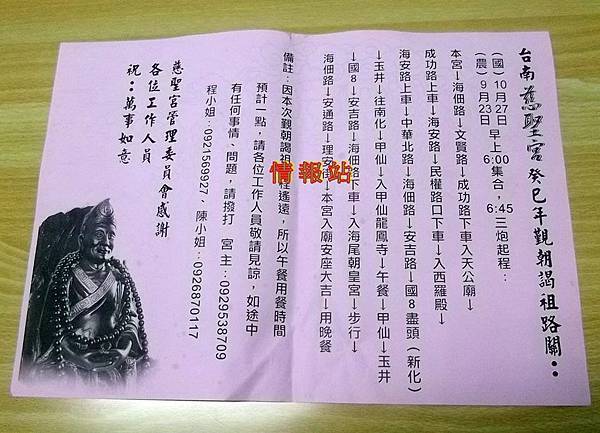 台南慈聖宮癸巳年覲朝謁祖路關：
(國)10月27日 早上6:00集合，6:45三炮起程：
(農)9月23日
本宮→海佃路→文賢路→成功路下車入天公廟→
成功路上車→海安路→民權路口下車→入西羅殿→
海安路上車→中華北路→海佃路→安吉路→國8盡頭（新化）
→玉井→往南化→甲仙→入甲仙龍鳳寺→午餐→甲仙→玉井
→國8→安吉路→海佃路下車→入海尾朝皇宮→步行→
海佃路→安通路→理安街→本宮入廟安座大吉→用晚餐
備註：因本次覲朝謁祖程遙遠，所以午餐用餐時間
預計一點，請各位工作人員敬請見諒，如途中
有任何事情、問題，請撥打 宮主：0929538709
程小姐：0921569927、陳小姐：0926870117
慈聖宮管理委員會感謝
各位工作人員
祝：萬事如意
情報站